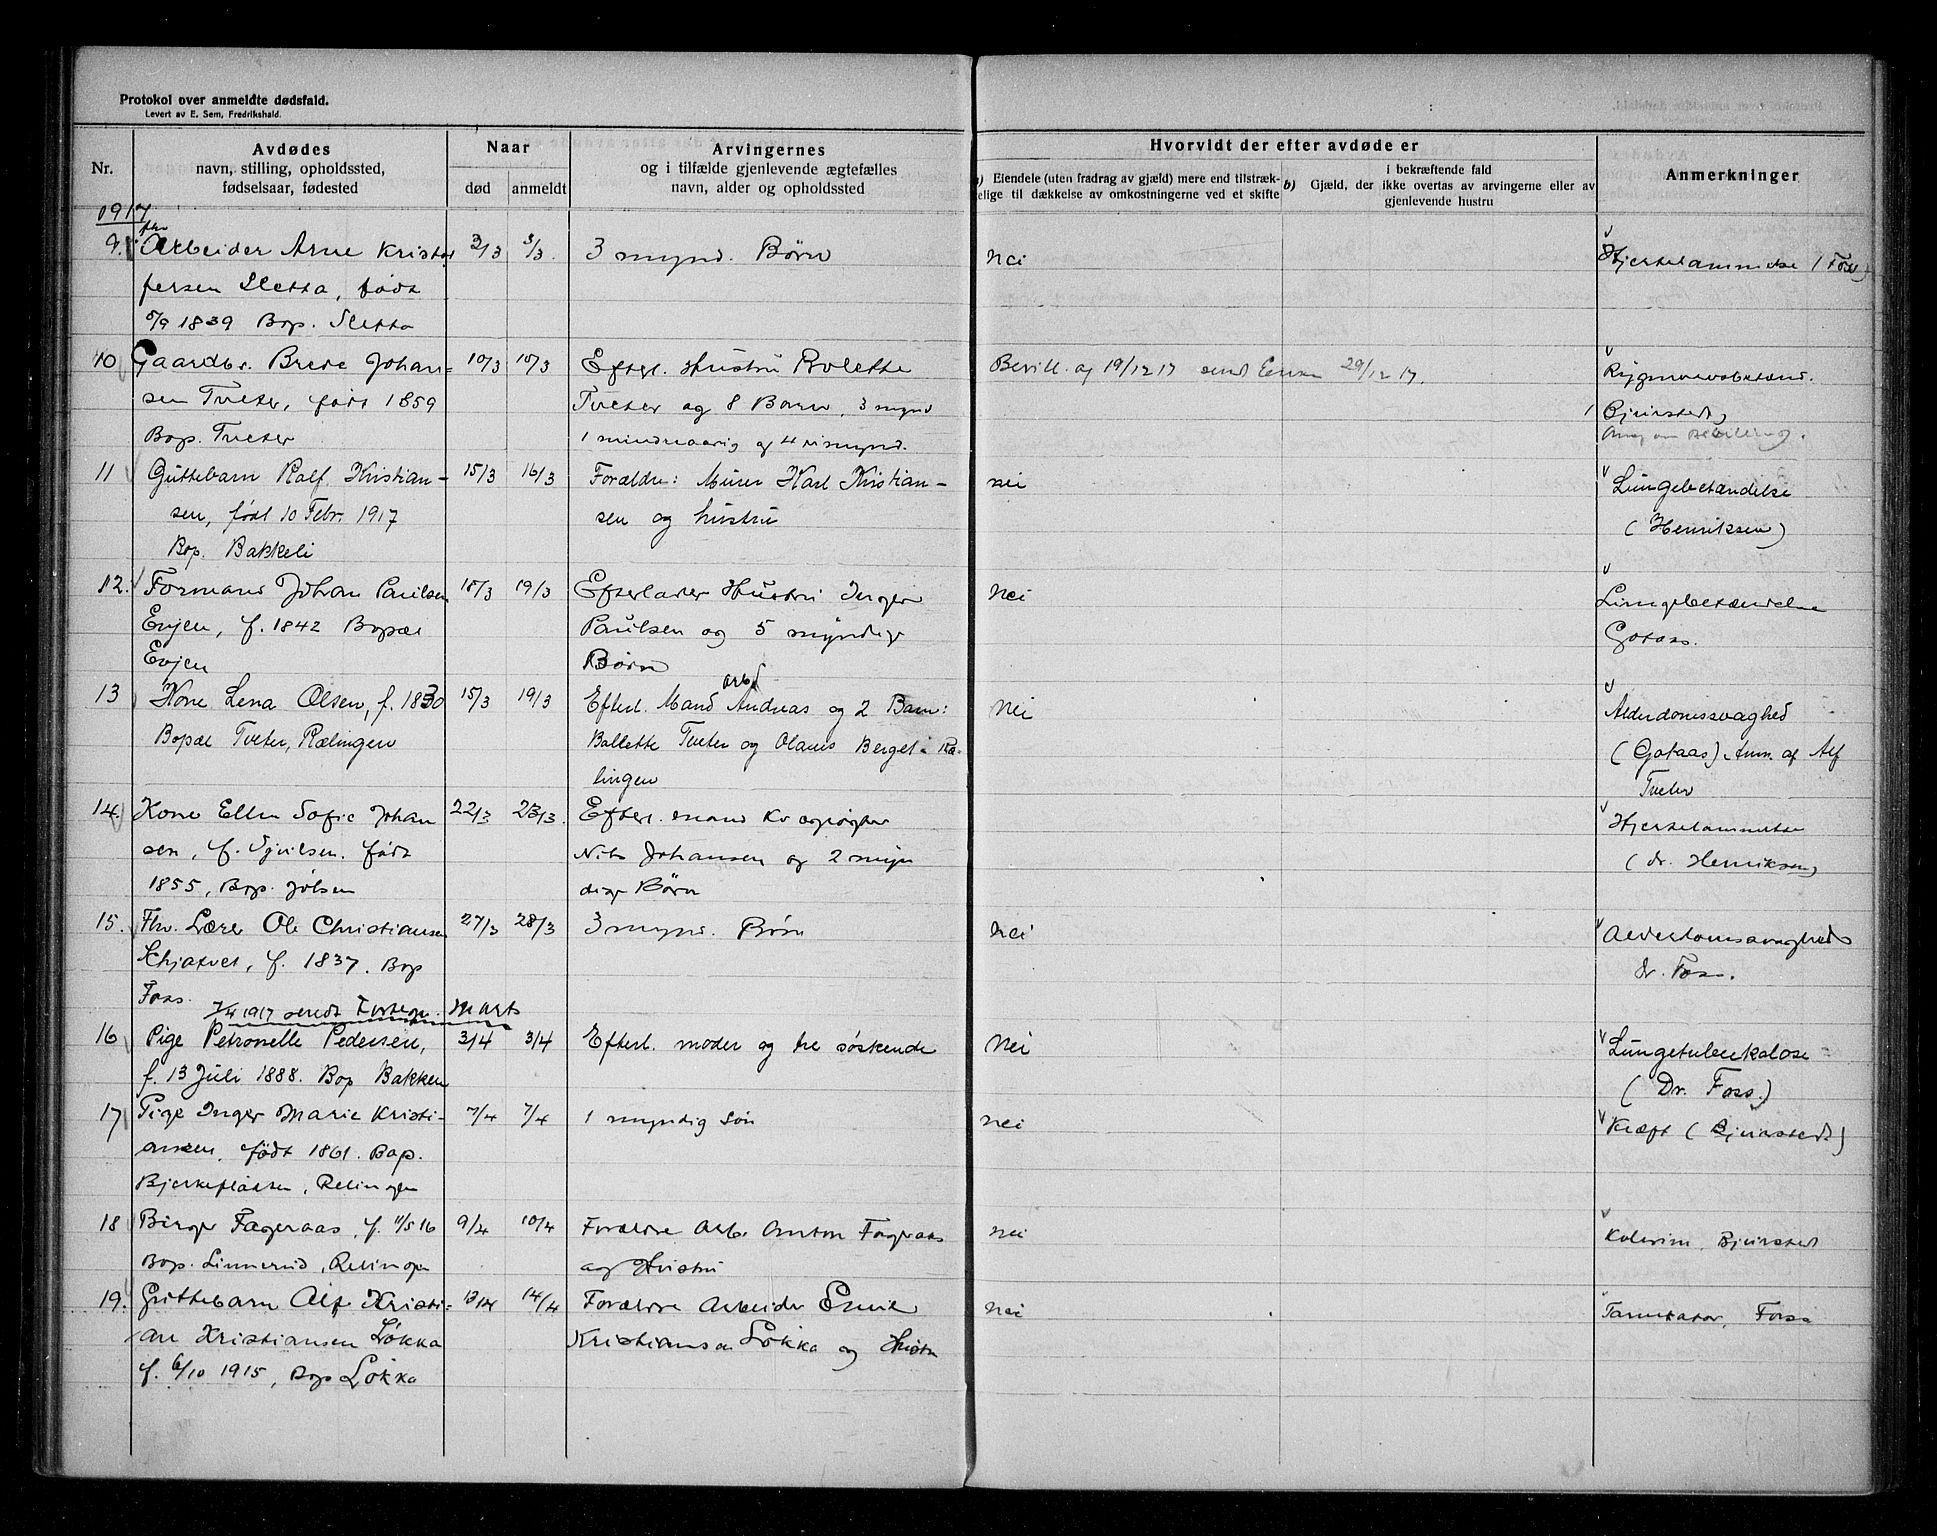 Protokol over anmeldte dødsfald.
Levert av E. Sem, Fredrikshald.
Nr.
Avdødes
navn, stilling, opholdssted,
fødselsaar, fødested
Naar
død anmeldt
Arvingernes
og i tilfælde gjenlevende ægtefælles
navn, alder og opholdssted
Hvorvidt der efter avdøde er
a) Eiendele (uten fradrag av gjæld) mere end tilstræk-
kelige til dækkelse av omkostningerne ved et skifte
b) Gjæld, der i bekræftende fald
ikke overtas av arvingerne eller av
gjenlevende hustru
Anmerkninger
1917
9. Arbeider Arne Kristof 2/3 3/3. 3 mynd. Børn nei Hjertelammelse (Foss)
fersen Sletta, født
5/9 1839 Bop. Sletta
10 Gaardbr. Brede Johan= 10/3 15/3 Efterl. Hustru Bolette Bevill. af 19/12 17 sendt 29/12 17.
sen Tveter, født 1859 Tveter og 8 Barn, 3 mynd Bjørnstedt
Bop. Tveter 1 mindreaarig og 4 umynd. Bevilling.
11 Guttebarn Ralf Kristian- 15/3 16/3 Forældre: Murer Karl Kristian- nei Lungebetændelse
sen, født 10 Febr. 1917 sen og hustru (Henriksen)
Bop. Bakkeli
12. Formand Johan Paulsen 18/3 19/3 Efterlader Hustru Inger Nei Lungebetændelse
Evjen, f. 1842 Bopæl Paulsen og 5 myndige Gotaas.
Evjen Børn
13 Kone Lena Olsen, f. 1830 15/3 19/3 Efterl. Mand arbd Andreas og 2 Barn: Nei Alderdomssvaghed
Bopæl Tveter, Rælingen Ballette Tveter og Olaus Berget i Ræ- (Gotaas) Anm. af Alf
lingen Tveter
14. Kone Ellen Sofie Johan 22/3 23/3. Efterl. mand Kvægrøgter Hjertelammelse
sen, f. Syvilsen. født Nils Johansen og 2 myn (dr. Henriksen)
1855, Bop. Jølsen dige Børn
15. Fhv. Lærer Ole Christiansen 27/3 28/3 3 mynd. Børn nei Alderdomssvaghed
Skjatvet, f. 1837. Bop dr. Foss.
Foss.
7/4 1917 sendt Fortegn. Marts
16 Pige Petronelle Pedersen, 3/4 3/4 Efterl. moder og tre søskende Nei Lungetuberkulose
f. 13 Juli 1888. Bop Bakken (Dr. Foss.)
17 Pige Inger Marie Kristi- 7/4 7/4 1 myndig søn nei Kræft (Bjørnstedt)
ansen, født 1861. Bop.
Bjerkepladsen, Relingen
18 Birger Fageraas, f. 11/5 16 9/4 10/4 Forældre Arb. Anton Fageraas nei Kolerine, Bjørnstedt
Bop. Linnerud, Relingen og Hustru
19. Guttebarn Alf Kristi- 13/4 14/4 Forældre Arbeider Emil nei Tarmkatar, Foss
an Kristiansen Løkka Kristiansen Løkka og Hustru
f. 6/10 1915, Bop Løkka